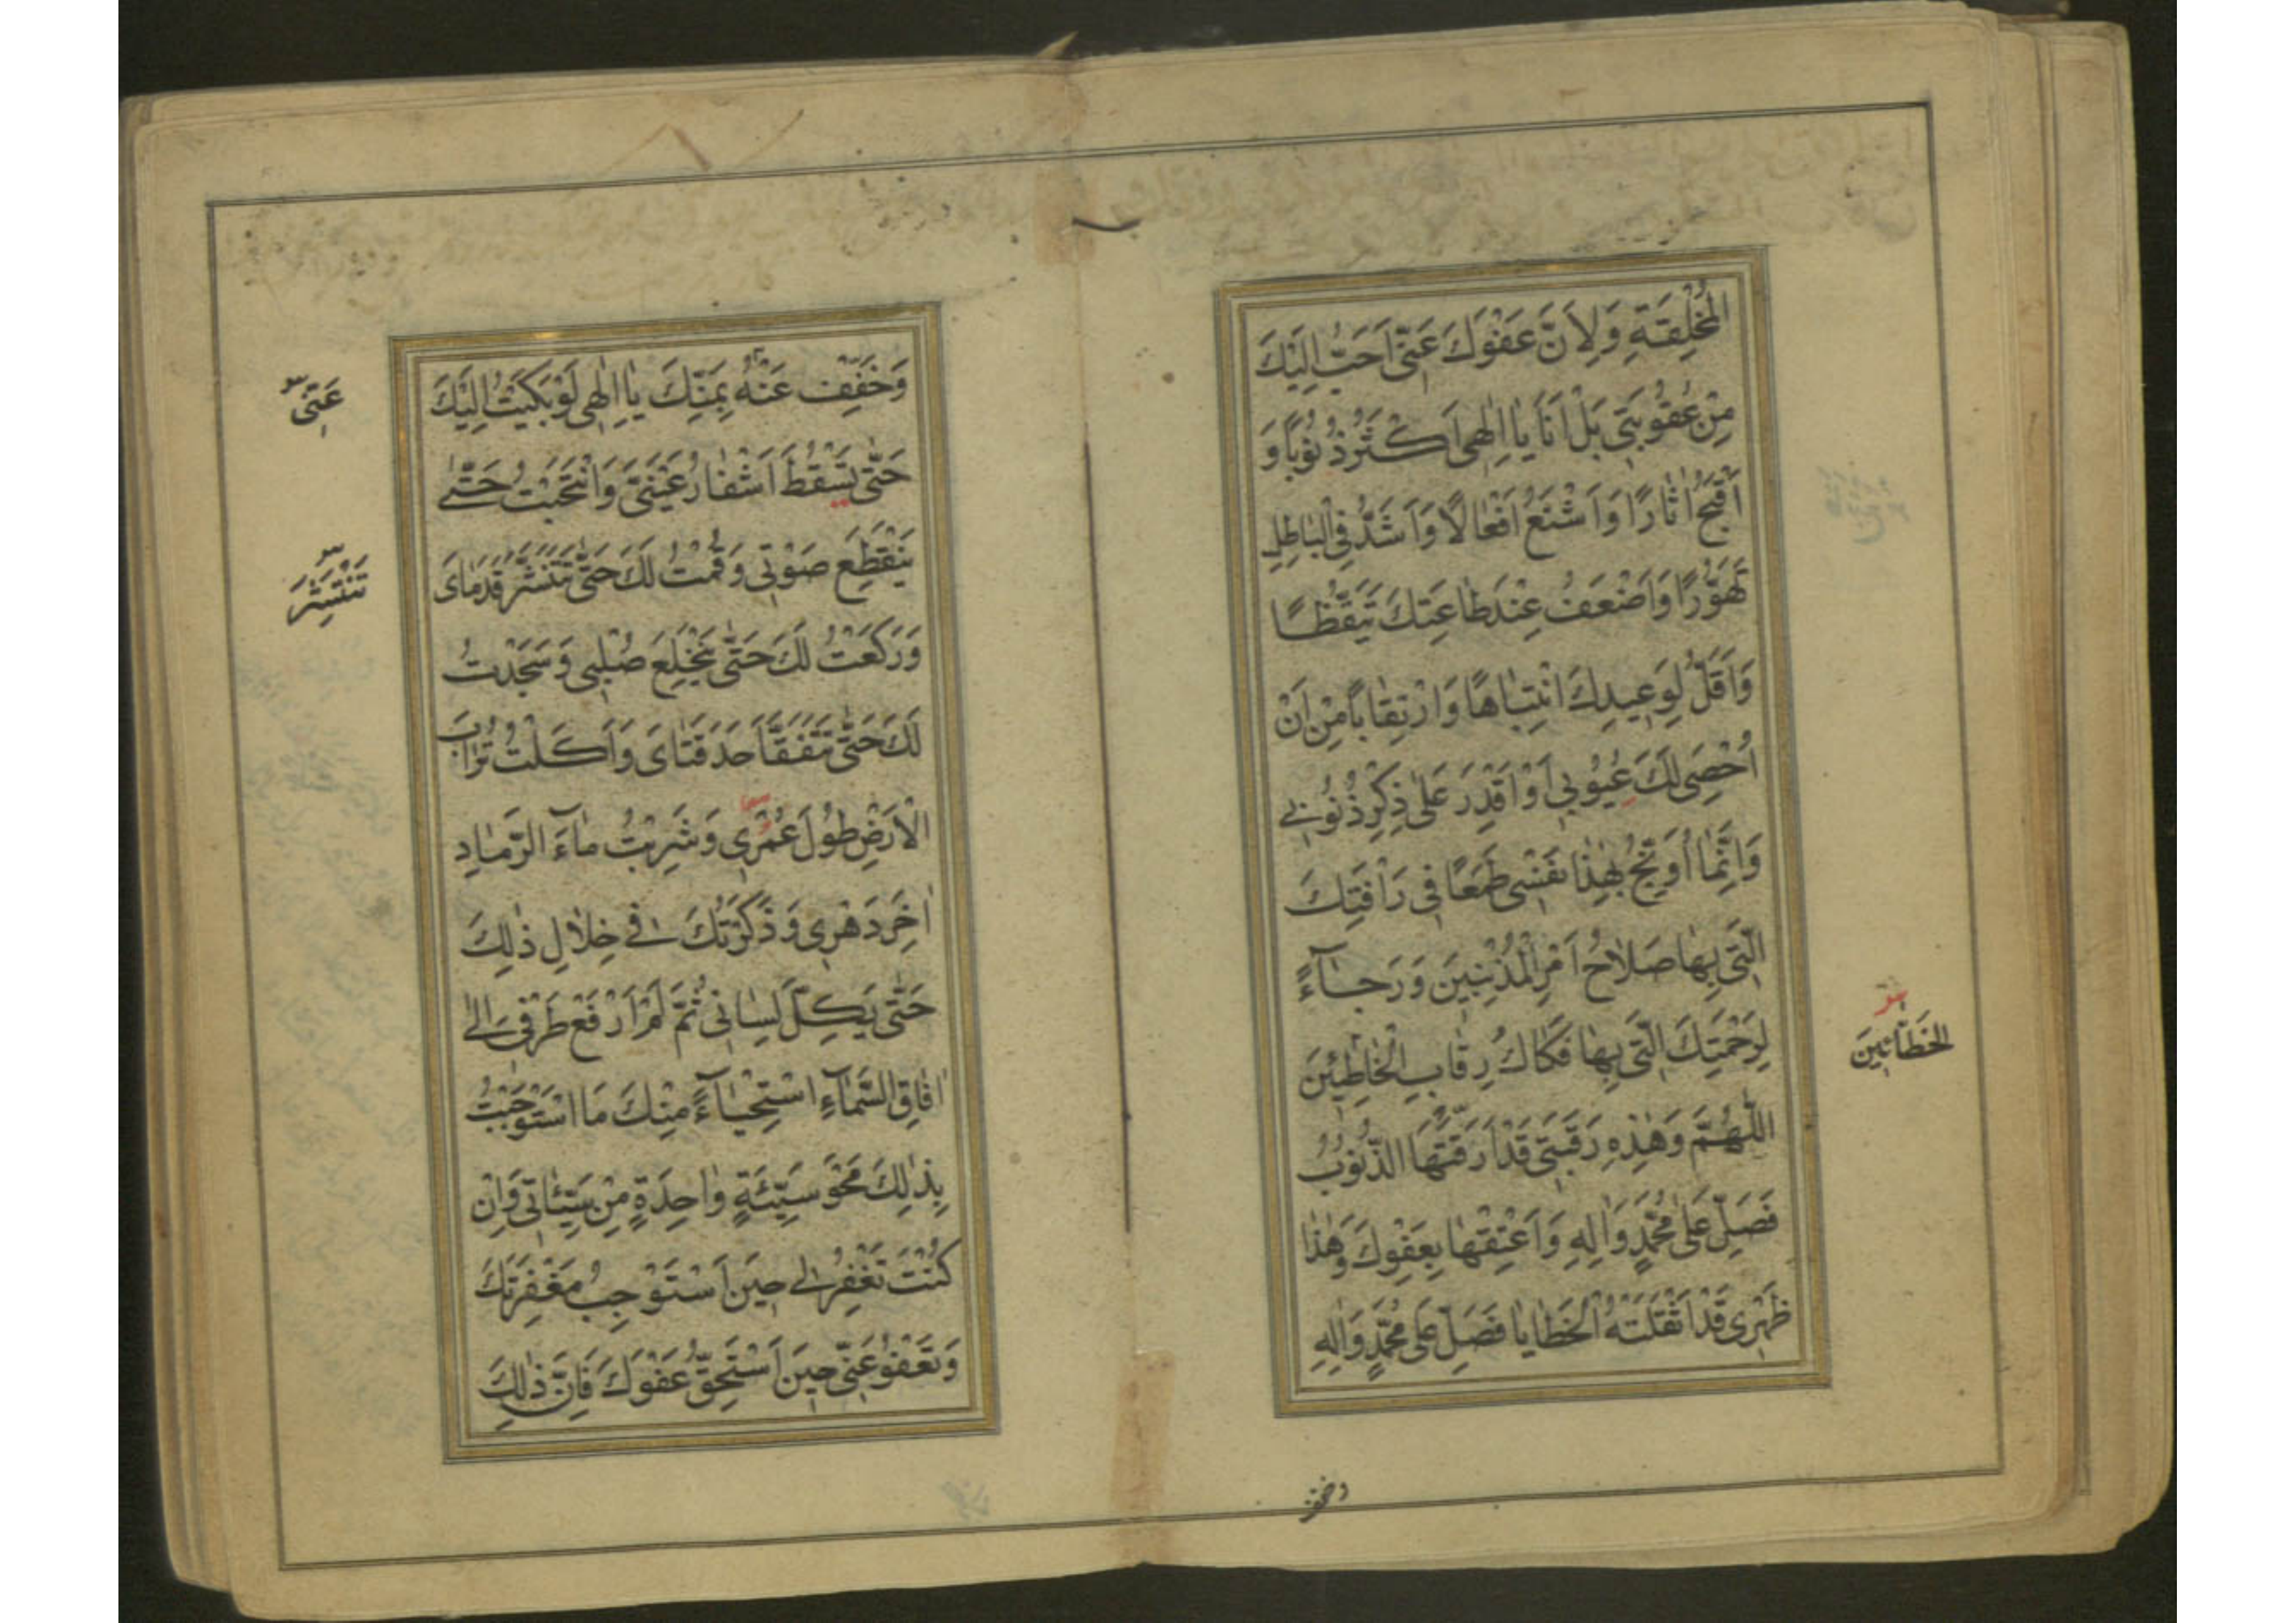 الْمُخْلِقَةِ وَلِاَنَّ عَفْوَكَ عَنّٖى اَحَبُّ اِلَيْكَ
مِنْ عُقُوبَتٖى بَلْ اَنَا يٰا اِلٰهٖى اَكْثَرُ ذُنُوبًا وَ
اَقْبَحُ اٰثٰارًا وَاَشْنَعُ اَفْعٰالًا وَاَشَدُّ فِى الْبٰاطِلِ
تَهَوُّرًا وَاَضْعَفُ عِنْدَ طٰاعَتِكَ تَيَقُّظًا
وَاَقَلُّ لِوَعٖيدِكَ انْتِبٰاهًا وَارْتِقٰابًا مِنْ اَنْ
اُحْصِىَ لَكَ عُيُوبٖى اَوْ اَقْدِرَ عَلٰى ذِكْرِ ذُنُوبٖى
وَاِنَّمٰا اُوَبِّخُ بِهٰذٰا نَفْسٖى طَمَعًا فٖى رَاْفَتِكَ
الَّتٖى بِهٰا صَلاٰحُ اَمْرِ الْمُذْنِبٖينَ وَرَجٰآءً
لِرَحْمَتِكَ الَّتٖى بِهٰا فَكٰاكُ رِقٰابِ الْخٰاطِئٖينَ
الْخَطّٰائٖينَ
اَللّٰهُمَّ وَهٰذِهٖ رَقَبَتٖى قَدْ اَرَقَّتْهَا الذُّنُوبُ
فَصَلِّ عَلٰى مُحَمَّدٍ وَاٰلِهٖ وَاَعْتِقْهٰا بِعَفْوِكَ وَهٰذٰا
ظَهْرٖى قَدْ اَثْقَلَتْهُ الْخَطٰايٰا فَصَلِّ عَلٰى مُحَمَّدٍ وَاٰلِهٖ
وخفف
وَخَفِّفْ عَنْهُ بِمَنِّكَ يٰا اِلٰهٖى لَوْ بَكَيْتُ اِلَيْكَ
عَنّٖى
حَتّٰى تَسْقُطَ اَشْفٰارُ عَيْنَىَّ وَانْتَحَبْتُ حَتّٰى
يَنْقَطِعَ صَوْتٖى وَقُمْتُ لَكَ حَتّٰى تَتَنَشَّرَ قَدَمٰاىَ
تَنْتَشِرَ
وَرَكَعْتُ لَكَ حَتّٰى يَنْخَلِعَ صُلْبٖى وَسَجَدْتُ
لَكَ حَتّٰى تَتَفَقَّاَ حَدَقَتٰاىَ وَاَكَلْتُ تُرٰابَ
الْاَرْضِ طُولَ عُمْرٖى وَشَرِبْتُ مٰآءَ الرَّمٰادِ
اٰخِرَ دَهْرٖى وَذَكَرْتُكَ فٖى خِلاٰلِ ذٰلِكَ
حَتّٰى يَكِلَّ لِسٰانٖى ثُمَّ لَمْ اَرْفَعْ طَرْفٖى اِلٰى
اٰفٰاقِ السَّمٰآءِ اسْتِحْيٰآءً مِنْكَ مَا اسْتَوْجَبْتُ
بِذٰلِكَ مَحْوَ سَيِّئَةٍ وٰاحِدَةٍ مِنْ سَيِّئٰاتٖى وَاِنْ
كُنْتَ تَغْفِرُ لٖى حٖينَ اَسْتَوْجِبُ مَغْفِرَتَكَ
وَتَعْفُو عَنّٖى حٖينَ اَسْتَحِقُّ عَفْوَكَ فَاِنَّ ذٰلِكَ